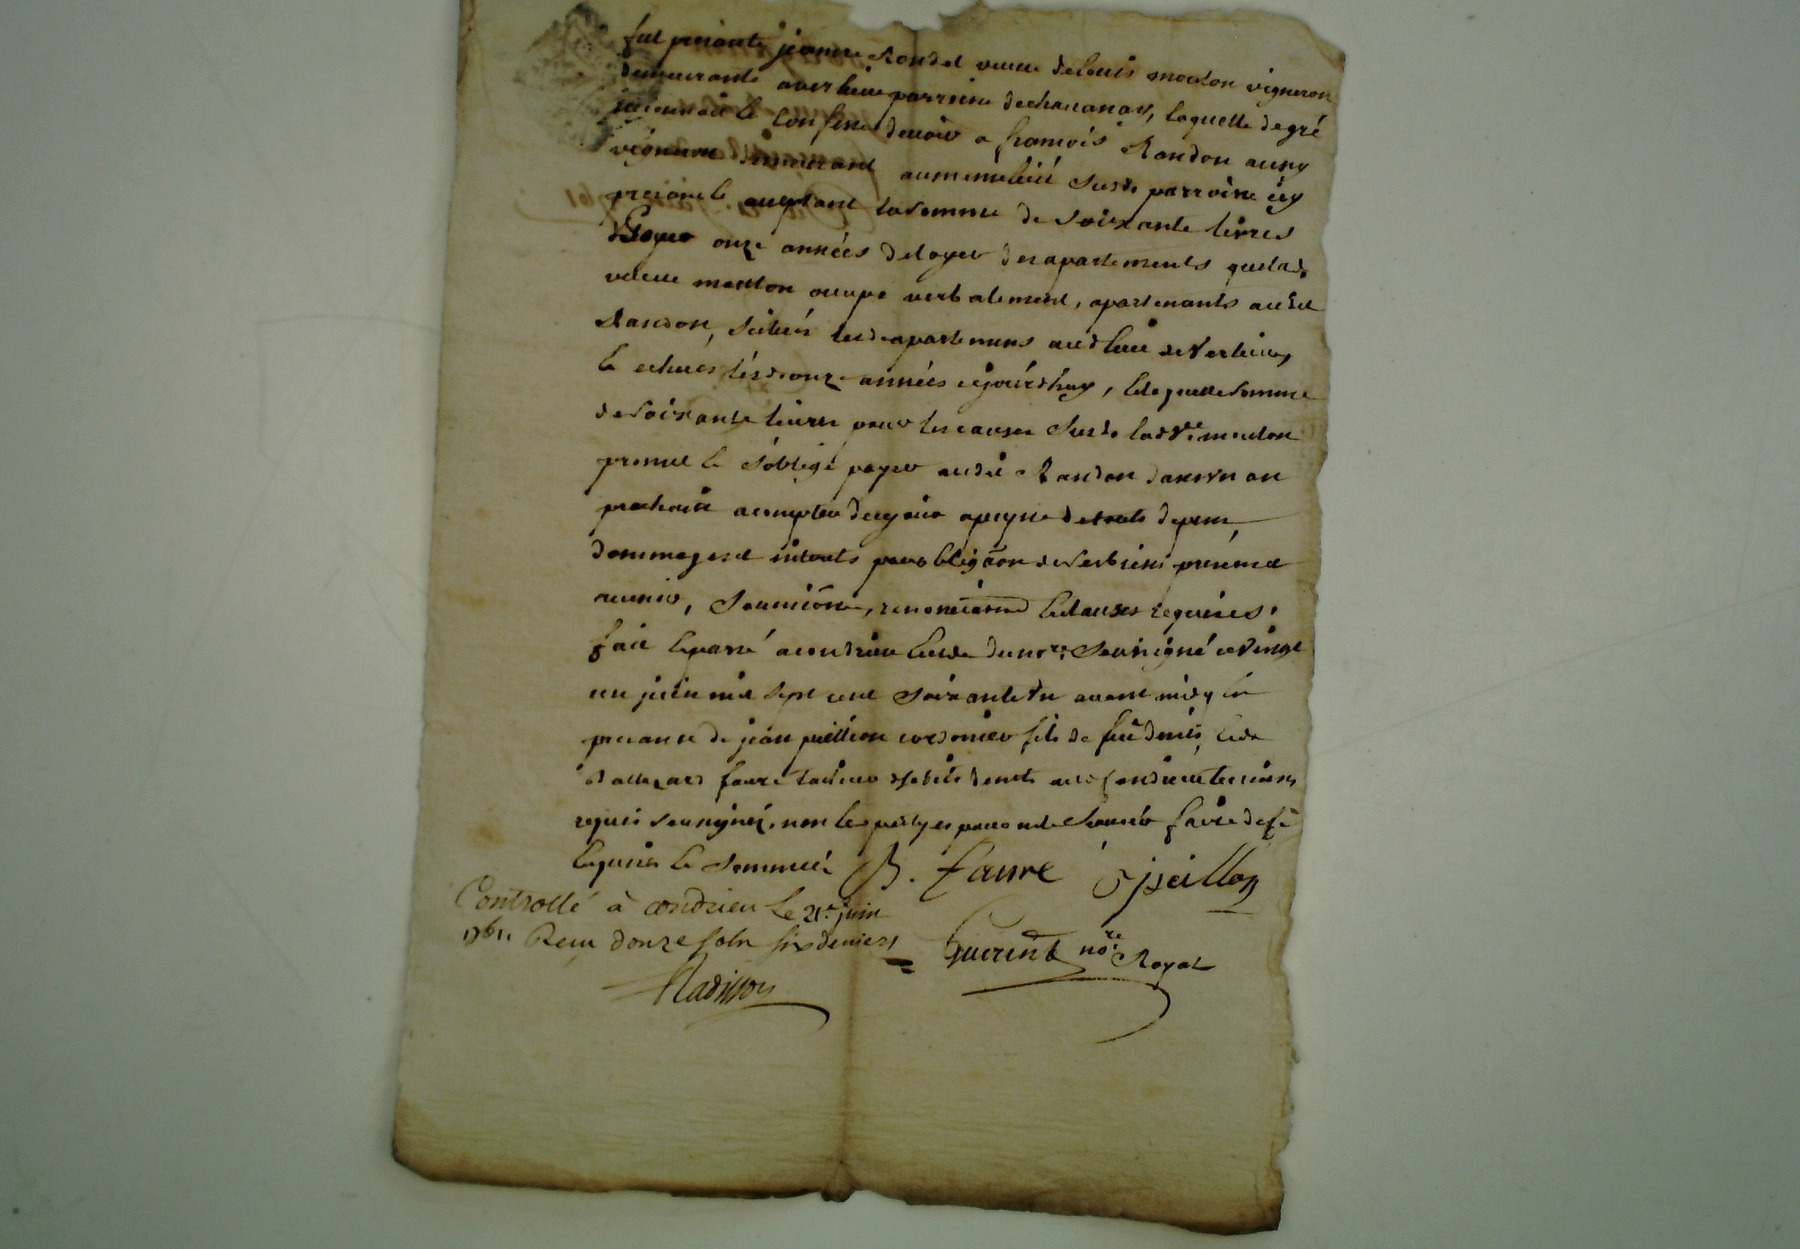 fut presante jeanne Rondet veuve de louis mouton vigneron
demeurante a verlieu parroisse de chavanay, laquelle de gré
confesse devoir a françois Randon aussy
vigneron demeurant susd. parroisse icy
present le acceptant la somme de soixante livres
onze années de loyer des apartements que lad.
veuve mouton occupe verbalement, apartenants audit
Randon, scitués lesd. apartemens aud. lieu de Verlieu,
le echues lesd. onze années cejourdhuy, laquelle somme
de soixante livres pour les causes susd. lad. Ve. mouton
promet le s'oblige payer audit Randon dans un an
prochain a compter de ce jour a peyne de touts depens
dommages et interets par obligãon de ses biens presents et
avenir, soumissions, renonciations le clauses requises.
fait le passé a condrieu letude du nore. soussigné ce vingt
un juin mil sept cent soixante un avant midy en
presance de jean peillon cordonier fils de feu denis, le de
faure tailleur d'habits demts. aud. condrieu temoins
requis soussignés, non les partyes pour ne le scavoir faire de ce
lequises le sommées B. faure J peillon
Controllé à condrieu le 21e. juin
1761. Reçu douze sols six deniers Guerin nore. Royal
Radisson